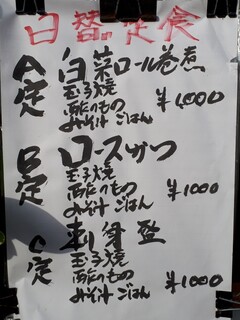 日替り定食
A定 白菜ロール巻煮
玉子焼
酢のもの
みそ汁 ごはん ¥1000
B定 ロースかつ
玉子焼
酢のもの
みそ汁 ごはん ¥1000
C定 刺身盛
玉子焼
酢のもの
みそ汁 ごはん ¥1000